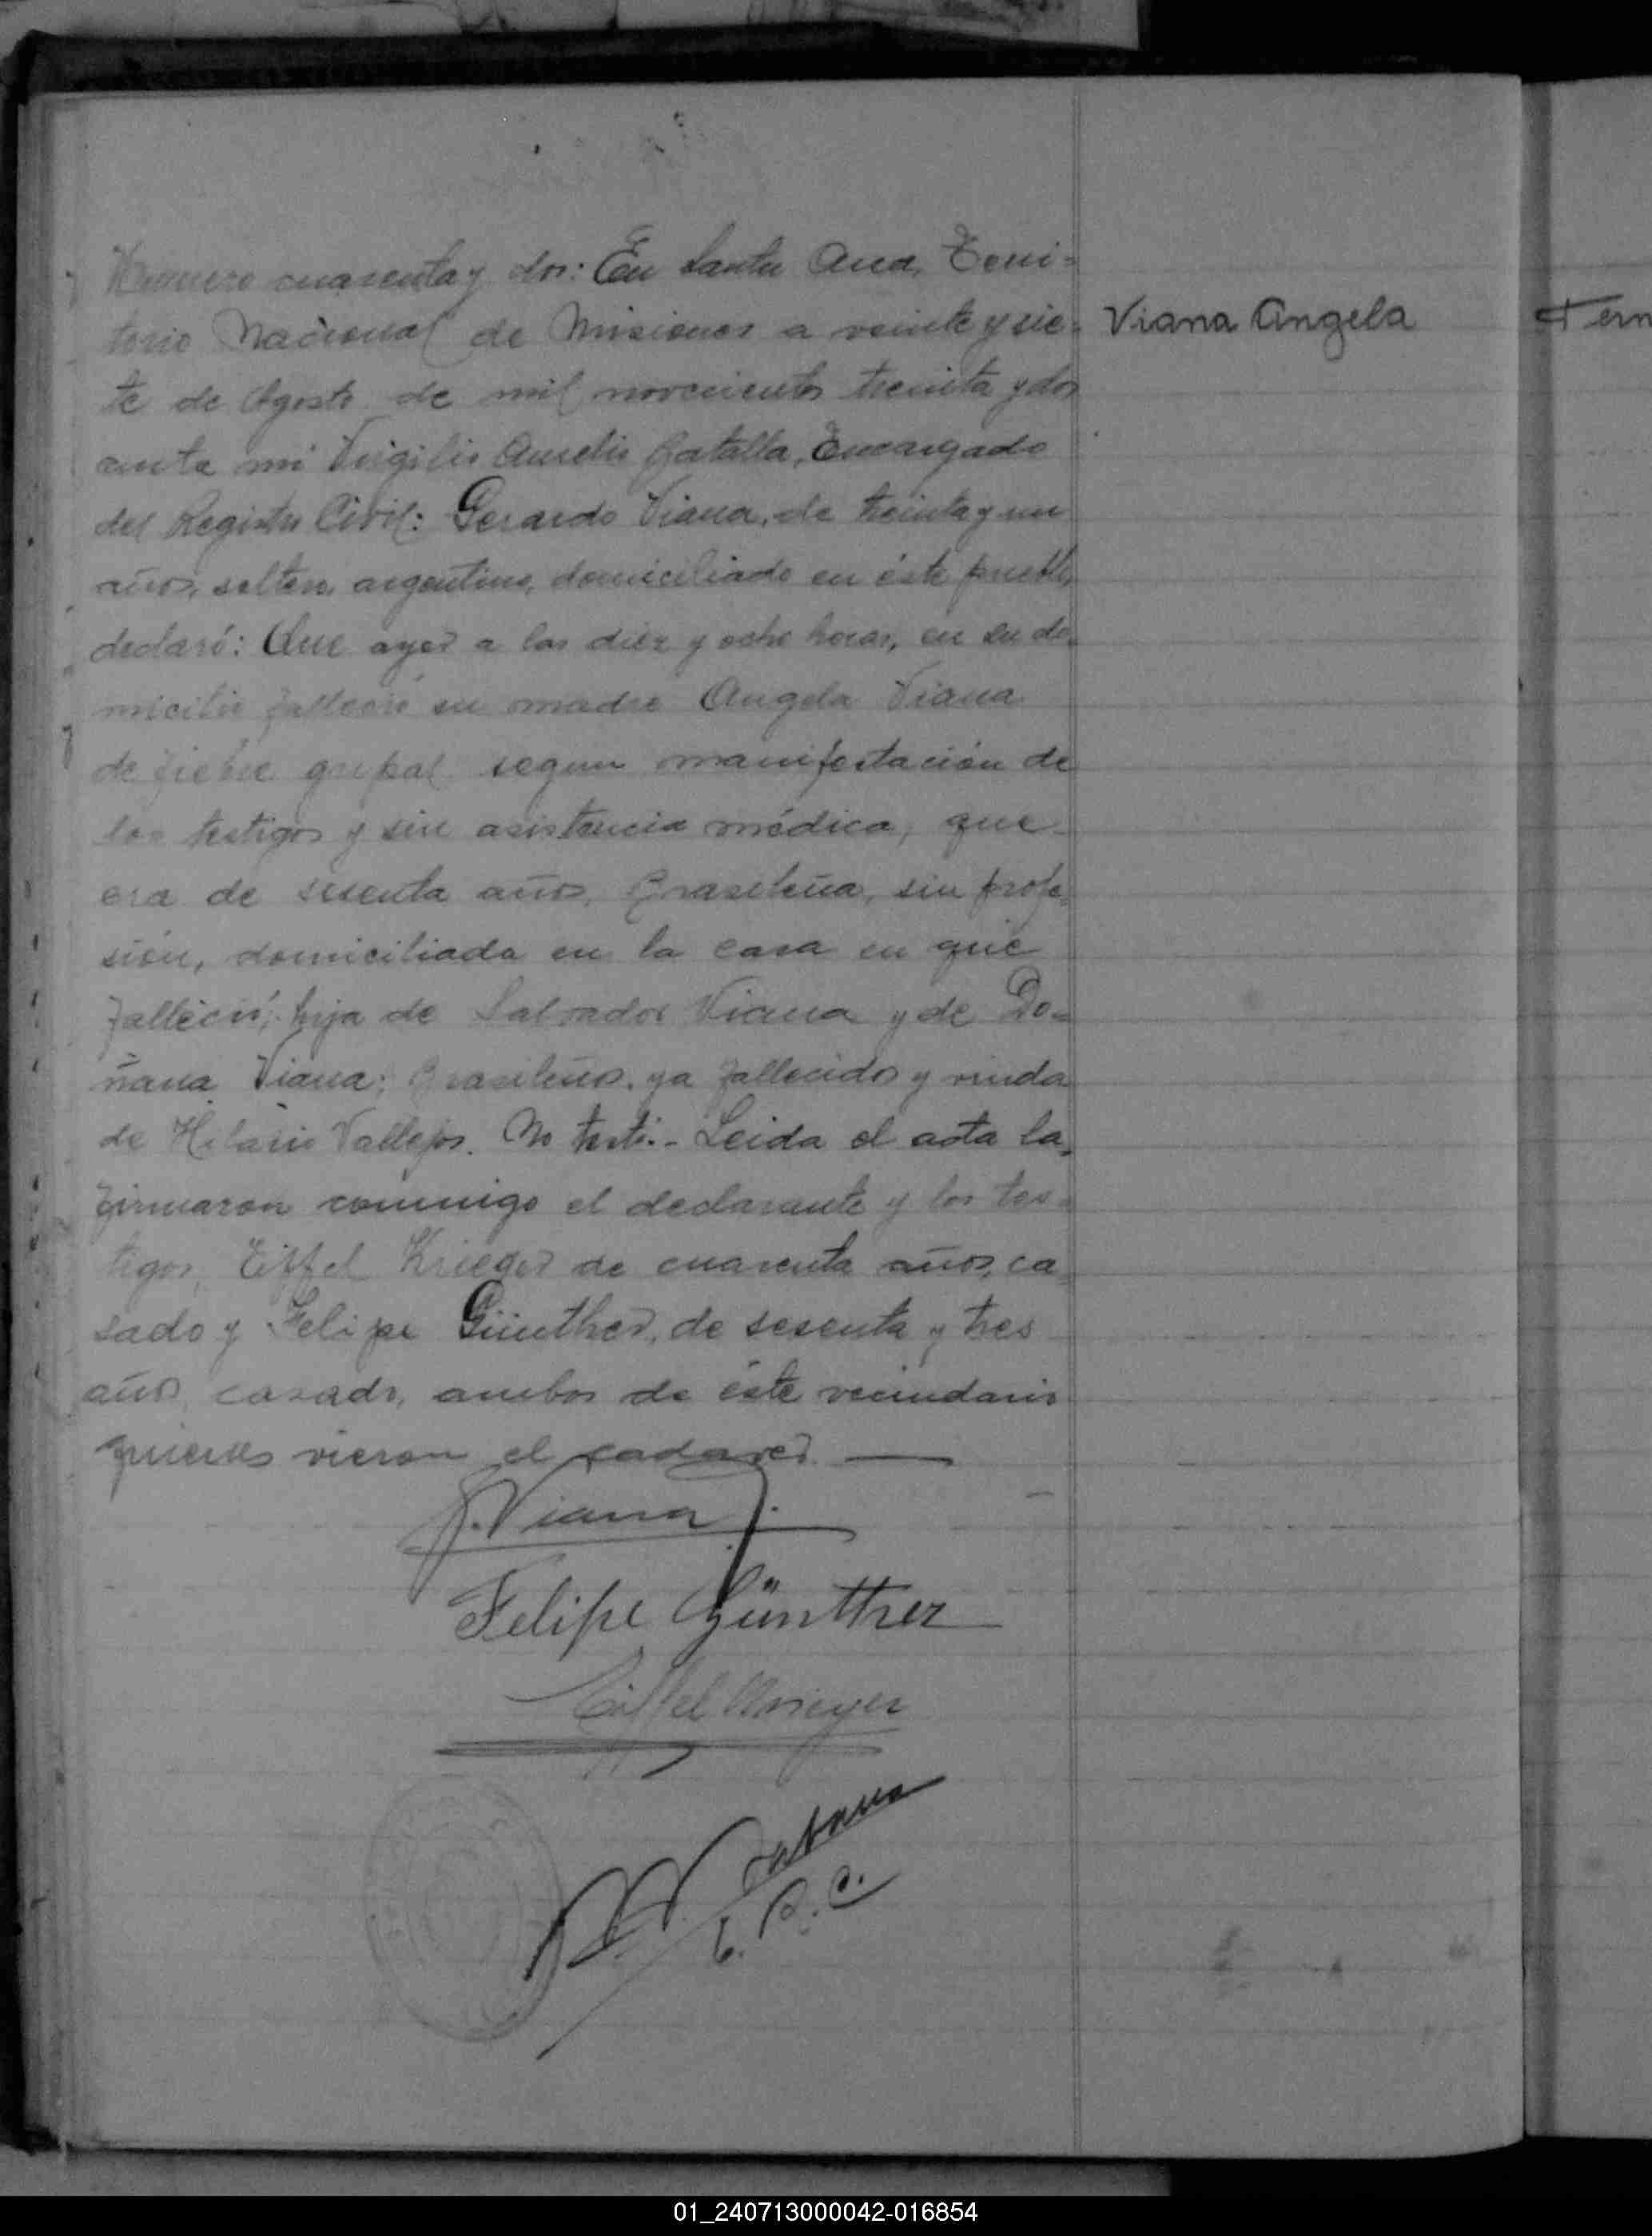 Número cuarenta y dos: En Santa Ana, Terri=
torio Nacional de Misiones a veinte y sie=
te de Agosto de mil novecientos treinta y dos
ante mi Virgilio Aurelio, Encargado
del Registro Civil: Gerardo Viana, de treinta y un
años, soltero, argentino, domiciliado en éste pueblo,
declaró: Que ayer a las diez y ocho horas, en su do=
micilio falleció su madre Angela Viana
de fiebre gripal segun manifestación de
los testigos y sin asistencia médica, que
era de sesenta años, Brasileña, sin profe=
sión, domiciliada en la casa en que
falleció, hija de Salvador Viana y de Do=
ñana Viana; Brasileños, ya fallecidos y viuda
de Hilario Vallejos. No testó.- Leida el acta la
firmaron conmigo el declarante y los tes=
tigos, Eiffel Krieger de cuarenta años, ca=
sado y Felipe Günther, de sesenta y tres
años, casado, ambos de éste vecindario
quienes vieron el cadaver. —
G. Viana
Felipe Günther
Eiffel Krieger
E. R. C.
Viana Angela
Fern
01_240713000042-016854